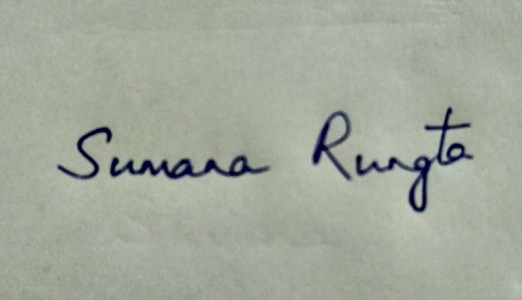 Sumana Rungta